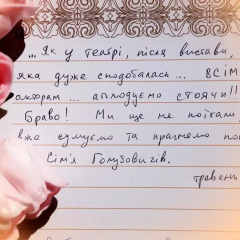 ... Як у театрі, після вистави,
яка дуже сподобалась... ВСІМ
акторам... аплодуємо стоячи!!
Браво! Ми ще не поїхали,
вже сумуємо та прагнемо по
Сім'я Голубовичів.
травень